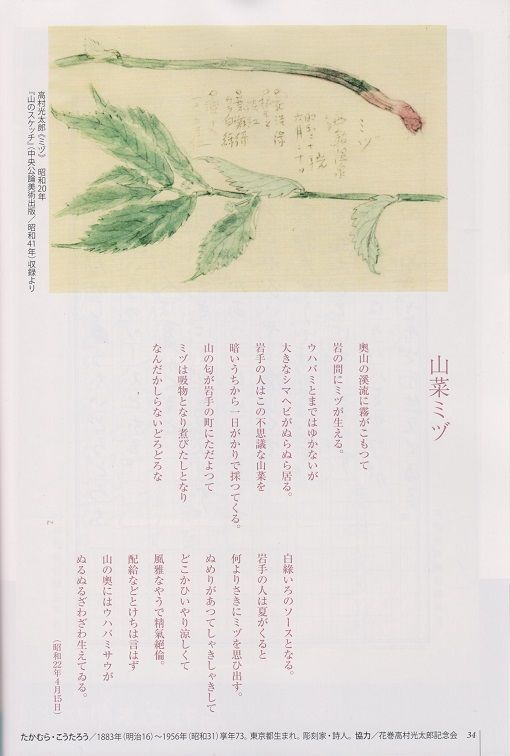 ミヅ
高村光太郎《ミヅ》 昭和20年
『山のスケッチ』(中央公論美術出版/昭和41年)収録より
山菜ミヅ
奥山の溪流に霧がこもつて
岩の間にミヅが生える。
ウハバミとまではゆかないが
大きなシマヘビがぬらぬら居る。
岩手の人はこの不思議な山菜を
暗いうちから一日がかりで採つてくる。
山の匂が岩手の町にただよつて
ミヅは吸物となり煮びたしとなり
なんだかしらないどろどろな
白緑いろのソースとなる。
岩手の人は夏がくると
何よりさきにミヅを思ひ出す。
ぬめりがあつてしやきしやきして
どこかひいやり涼しくて
風雅なやうで精氣絕倫。
配給などとけちは言はず
山の奧にはウハバミサウが
ぬるぬるざわざわ生えてゐる。
(昭和22年4月15日)
たかむら・こうたろう/1883年(明治16)〜1956年(昭和31)享年73。東京都生まれ。彫刻家・詩人。協力/花巻高村光太郎記念会 34